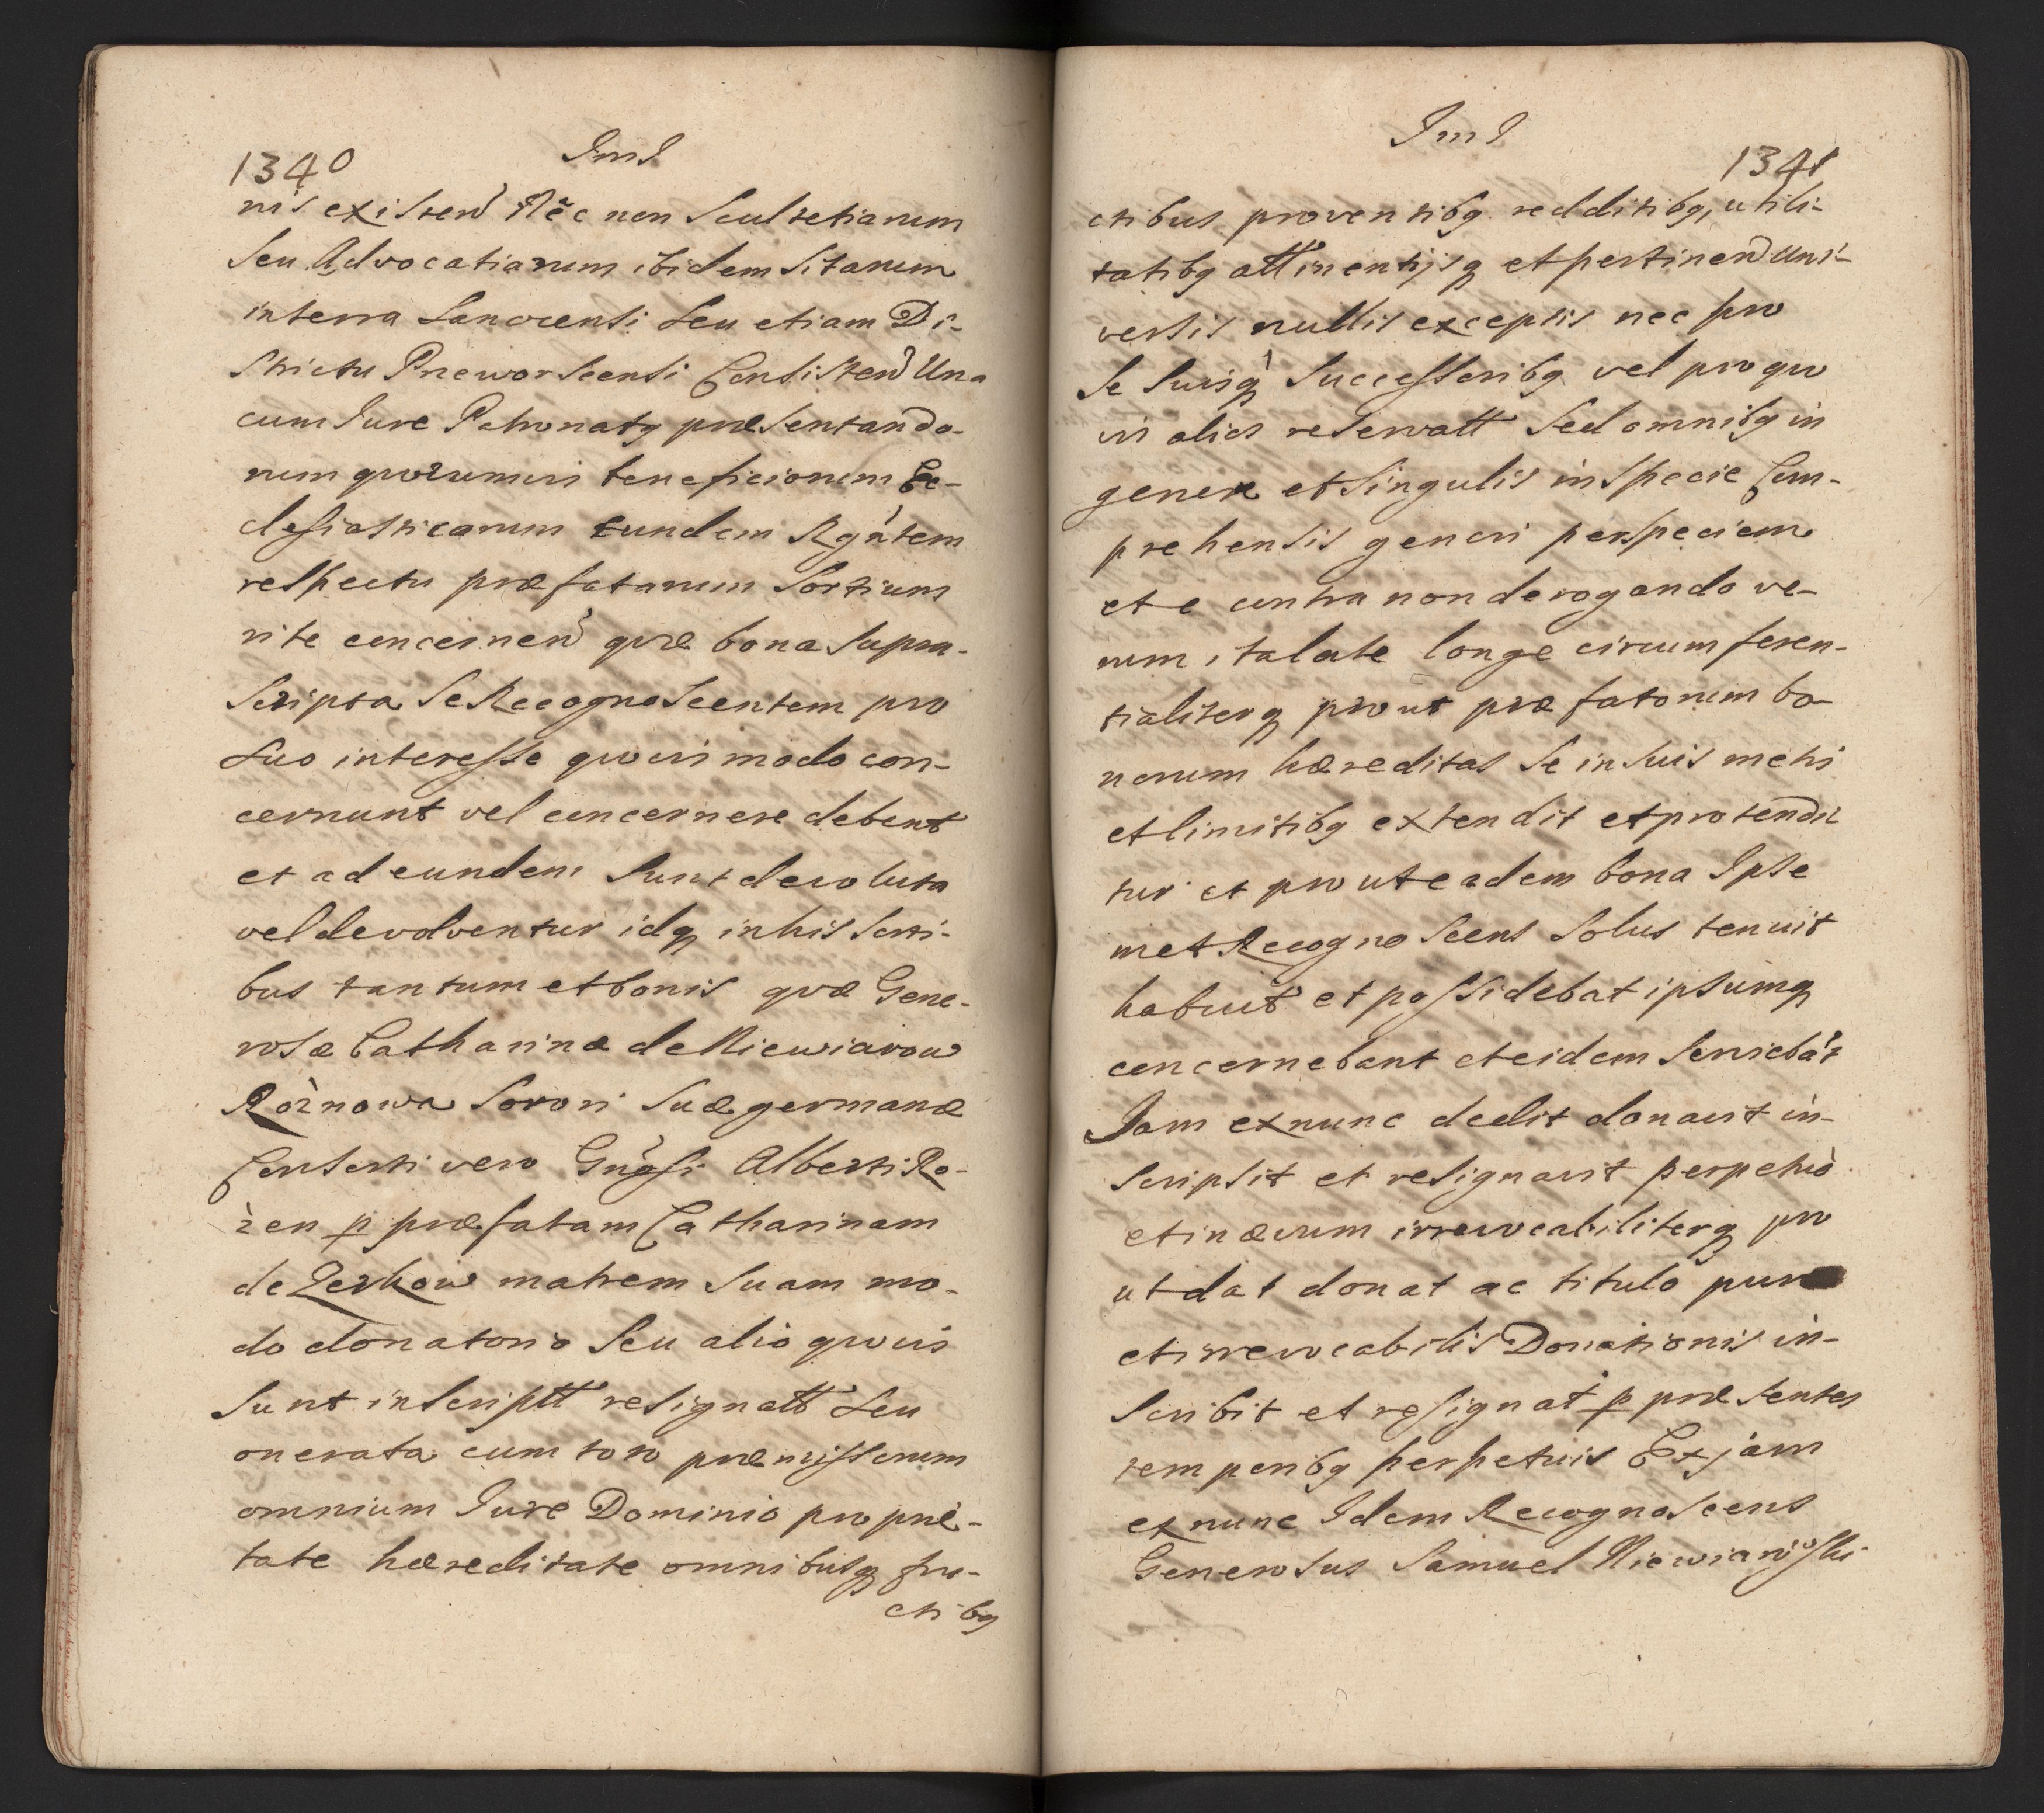 1340
ImI
nis existen Nec non Scultetiarum
Seu Advocatiarum ibidem Sitarum
in terra Sanocensi Seu etiam Di-
strictu Preworscensi Consisten Una
cum Iure Patronatq præsentando-
rum quorumvis beneficiorum Ec-
clesiasticarum eundem Rgntem
respectu præfatarum Sortium
rite concernen quæ bona Supra-
Scripta Se Recognoscentem pro
Suo interesse quovismodo con-
cernunt vel concernere debent
et ad eundem Sunt devoluta
vel devolventur idq in his Sorti-
bus tantum et bonis quæ Gene-
rosæ Catharinæ de Niewiarow
Rożnowa Sorori Suæ germanæ
Consorti vero Gnosi Alberti Ro-
żen p præfatam Catharinam
de Zerkow matrem Suam mo-
do donatorio Seu alio quovis
Sunt inscriptt resignatt Seu
onerata cum toto præmissorum
omnium Iure Dominio proprie-
tate hæreditate omnibusq fru-
ctibq
ImI
1341
ctibus proventibq redditibq, utili-
tatibq attinentijsq et pertinen Uni-
versis nullis exceptis nec pro
Se Suisq Successoribq vel pro quo
vis alios reservatt Sed omnibq in
genere et Singulis in Specie Com-
prehensis generi per Speciem
et e contra non derogando ve-
rum ita late longe circumferen-
tialiterq prout præfatorum bo-
norum hæreditas Se in Suis metis
et limitibq extendit et protendi
tur et prout eadem bona Ipse
met Recognoscens Solus tenuit
habuit et possidebat ipsumq
concernebant et eidem Serviebāt
Jam ex nunc dedit donavit in-
Scripsit et resignavit perpetuò
et in ævum irrevocabiliterq pro
ut dat donat ac titulo puræ
et irrevocabilis Donationis in-
Scribit et resignat p præsentes
temporibq perpetuis Et jam
ex nunc Idem Recognoscens
Generosus Samuel Niewiarowski